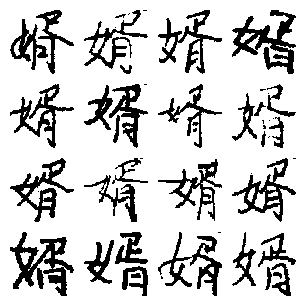 婿婿婿婿
婿婿婿婿
婿婿婿婿
婿婿婿婿